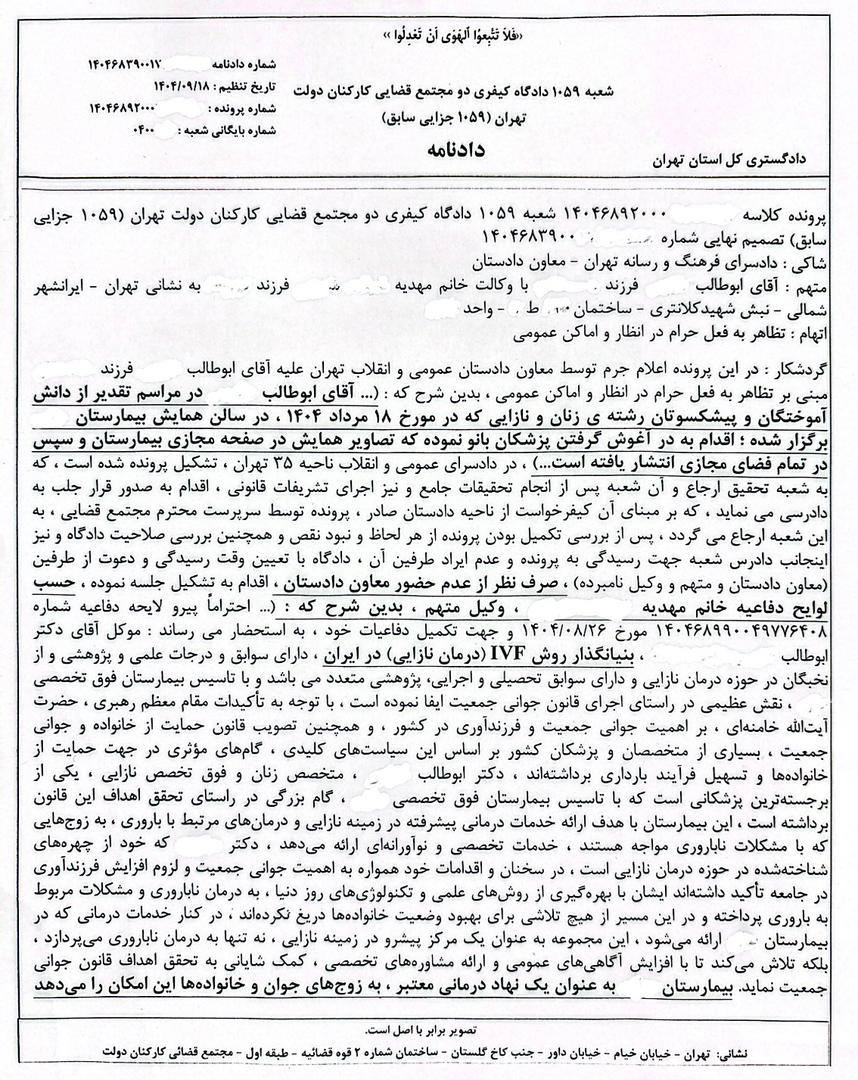 «فَلاَ تَتَّبِعُوا اَلْهَوى‌ اَنْ تَعْدِلُوا »
شماره دادنامه ۱۴۰۴۶۸۳۹۰۰۱۷
تاریخ تنظیم : ۱۴۰۴/۰۹/۱۸
شماره پرونده : ۱۴۰۴۶۸۹۲۰۰۰
شماره بایگانی شعبه : ۰۴۰۰
شعبه ۱۰۵۹ دادگاه کیفری دو مجتمع قضایی کارکنان دولت
تهران (۱۰۵۹ جزایی سابق)
دادنامه
دادگستری کل استان تهران
پرونده کلاسه ۱۴۰۴۶۸۹۲۰۰۰ شعبه ۱۰۵۹ دادگاه کیفری دو مجتمع قضایی کارکنان دولت تهران (۱۰۵۹ جزایی
سابق) تصمیم نهایی شماره ۱۴۰۴۶۸۳۹۰۰
شاکی : دادسرای فرهنگ و رسانه تهران - معاون دادستان
متهم : آقای ابوطالب فرزند با وکالت خانم مهدیه فرزند به نشانی تهران - ایرانشهر
شمالی - نبش شهیدکلانتری - ساختمان ط - واحد
اتهام : تظاهر به فعل حرام در انظار و اماکن عمومی
گردشکار : در این پرونده اعلام جرم توسط معاون دادستان عمومی و انقلاب تهران علیه آقای ابوطالب فرزند
مبنی بر تظاهر به فعل حرام در انظار و اماکن عمومی ، بدین شرح که : (... آقای ابوطالب در مراسم تقدیر از دانش
آموختگان و پیشکسوتان رشته ی زنان و نازایی که در مورخ ۱۸ مرداد ۱۴۰۴ ، در سالن همایش بیمارستان
برگزار شده ؛ اقدام به در آغوش گرفتن پزشکان بانو نموده که تصاویر همایش در صفحه مجازی بیمارستان و سپس
در تمام فضای مجازی انتشار یافته است...) ، در دادسرای عمومی و انقلاب ناحیه ۳۵ تهران ، تشکیل پرونده شده است ، که
به شعبه تحقیق ارجاع و آن شعبه پس از انجام تحقیقات جامع و نیز اجرای تشریفات قانونی ، اقدام به صدور قرار جلب به
دادرسی می نماید ، که بر مبنای آن کیفرخواست از ناحیه دادستان صادر ، پرونده توسط سرپرست محترم مجتمع قضایی ، به
این شعبه ارجاع می گردد ، پس از بررسی تکمیل بودن پرونده از هر لحاظ و نبود نقص و همچنین بررسی صلاحیت دادگاه و نیز
اینجانب دادرس شعبه جهت رسیدگی به پرونده و عدم ایراد طرفین آن ، دادگاه با تعیین وقت رسیدگی و دعوت از طرفین
(معاون دادستان و متهم و وکیل نامبرده) ، صرف نظر از عدم حضور معاون دادستان ، اقدام به تشکیل جلسه نموده ، حسب
لوایح دفاعیه خانم مهدیه ، وکیل متهم ، بدین شرح که : (... احتراماً پیرو لایحه دفاعیه شماره
۱۴۰۴۶۸۹۹۰۰۴۹۷۷۶۴۰۸ مورخ ۱۴۰۴/۰۸/۲۶ و جهت تکمیل دفاعیات خود ، به استحضار می رساند : موکل آقای دکتر
ابوطالب ، بنیانگذار روش IVF (درمان نازایی) در ایران ، دارای سوابق و درجات علمی و پژوهشی و از
نخبگان در حوزه درمان نازایی و دارای سوابق تحصیلی و اجرایی، پژوهشی متعدد می باشد و با تاسیس بیمارستان فوق تخصصی
، نقش عظیمی در راستای اجرای قانون جوانی جمعیت ایفا نموده است ، با توجه به تأکیدات مقام معظم رهبری ، حضرت
آیت‌الله خامنه‌ای ، بر اهمیت جوانی جمعیت و فرزندآوری در کشور ، و همچنین تصویب قانون حمایت از خانواده و جوانی
جمعیت ، بسیاری از متخصصان و پزشکان کشور بر اساس این سیاست‌های کلیدی ، گام‌های مؤثری در جهت حمایت از
خانواده‌ها و تسهیل فرآیند بارداری برداشته‌اند ، دکتر ابوطالب ، متخصص زنان و فوق تخصص نازایی ، یکی از
برجسته‌ترین پزشکانی است که با تاسیس بیمارستان فوق تخصصی ، گام بزرگی در راستای تحقق اهداف این قانون
برداشته است ، این بیمارستان با هدف ارائه خدمات درمانی پیشرفته در زمینه نازایی و درمان‌های مرتبط با باروری ، به زوج‌هایی
که با مشکلات ناباروری مواجه هستند ، خدمات تخصصی و نوآورانه‌ای ارائه می‌دهد ، دکتر که خود از چهره‌های
شناخته‌شده در حوزه درمان نازایی است ، در سخنان و اقدامات خود همواره به اهمیت جوانی جمعیت و لزوم افزایش فرزندآوری
در جامعه تأکید داشته‌اند ایشان با بهره‌گیری از روش‌های علمی و تکنولوژی‌های روز دنیا ، به درمان ناباروری و مشکلات مربوط
به باروری پرداخته و در این مسیر از هیچ تلاشی برای بهبود وضعیت خانواده‌ها دریغ نکرده‌اند ، در کنار خدمات درمانی که در
بیمارستان ارائه می‌شود ، این مجموعه به عنوان یک مرکز پیشرو در زمینه نازایی ، نه تنها به درمان ناباروری می‌پردازد ،
بلکه تلاش می‌کند تا با افزایش آگاهی‌های عمومی و ارائه مشاوره‌های تخصصی ، کمک شایانی به تحقق اهداف قانون جوانی
جمعیت نماید. بیمارستان به عنوان یک نهاد درمانی معتبر ، به زوج‌های جوان و خانواده‌ها این امکان را می‌دهد
تصویر برابر با اصل است.
نشانی: تهران - خیابان خیام - خیابان داور - جنب کاخ گلستان - ساختمان شماره ۲ قوه قضائیه - طبقه اول - مجتمع قضائی کارکنان دولت